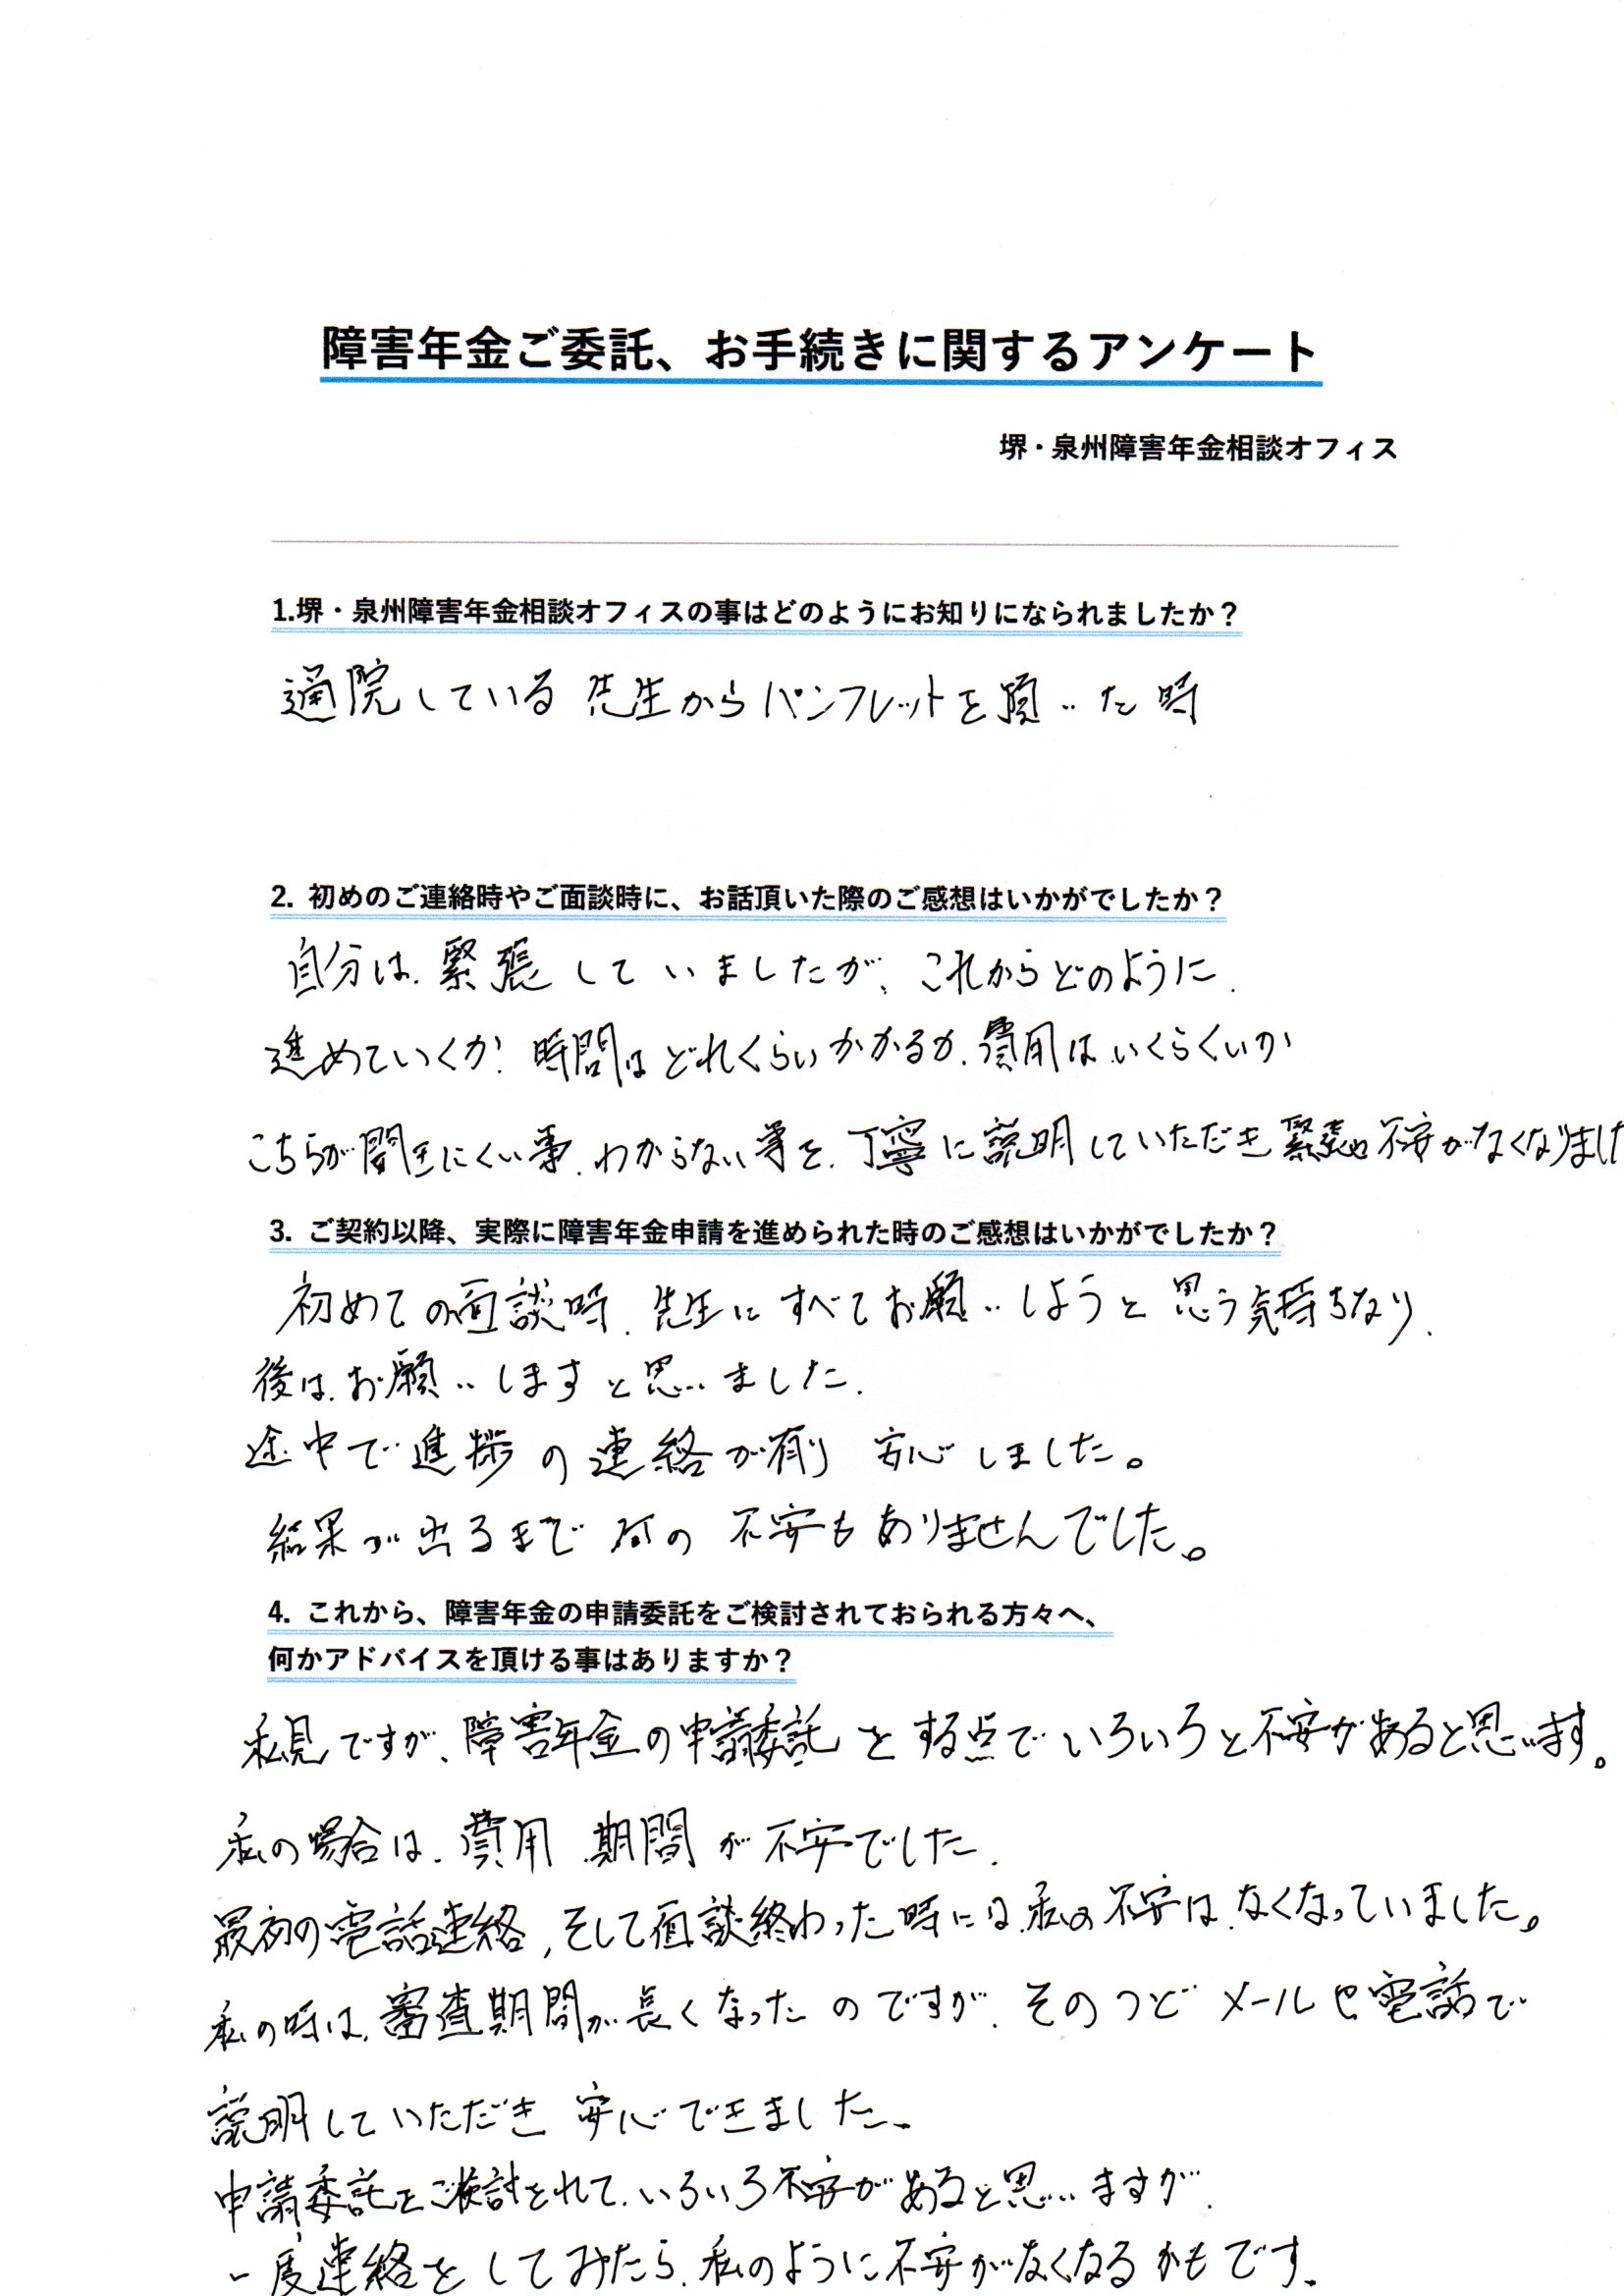 障害年金ご委託、お手続きに関するアンケート
堺・泉州障害年金相談オフィス
1.堺・泉州障害年金相談オフィスの事はどのようにお知りになられましたか？
通院している先生からパンフレットを頂いた時
2. 初めのご連絡時やご面談時に、お話頂いた際のご感想はいかがでしたか？
自分は、緊張していましたが、これからどのように、
進めていくか？時間はどれくらいかかるか、費用はいくらくいか
こちらが聞きにくい事、わからない等を、丁寧に説明していただき緊張や不安がなくなりました
3. ご契約以降、実際に障害年金申請を進められた時のご感想はいかがでしたか？
初めての面談時、先生にすべてお願いしようと思う気持ちなり、
後は、お願いしますと思いました。
途中で進捗の連絡が有り安心しました。
結果が出るまで何の不安もありませんでした。
4. これから、障害年金の申請委託をご検討されておられる方々へ、
何かアドバイスを頂ける事はありますか？
私見ですが、障害年金の申請委託とする点でいろいろと不安があると思います。
私の場合は、費用、期間が不安でした。
最初の電話連絡、そして面談終わった時には、私の不安は、なくなっていました。
私の時は、審査期間が長くなったのですが、そのつどメールや電話で
説明していただき安心できました。
申請委託をご検討されて、いろいろ不安があると思いますが、
一度連絡をしてみたら、私のように不安がなくなるかもです。